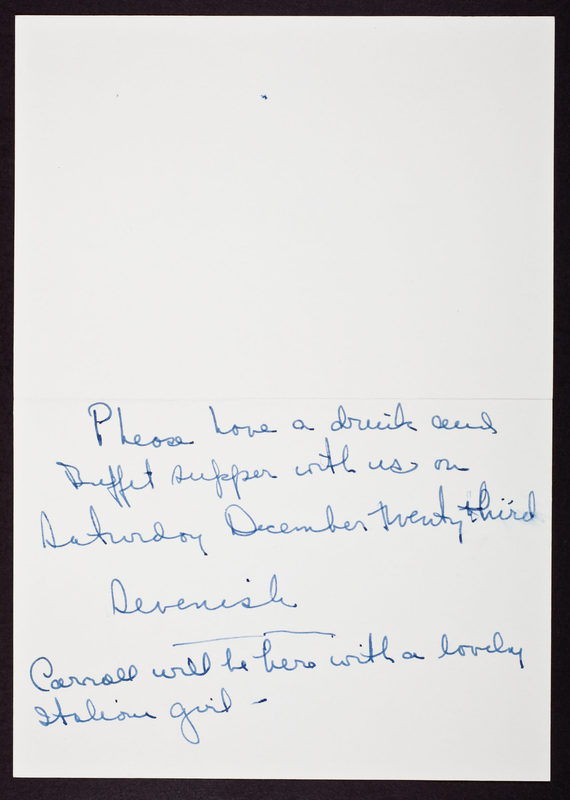 Please have a drink and
Buffet supper with us on
Saturday December twenty third
Devenish
Carroll will be here with a lovely
Italian girl -